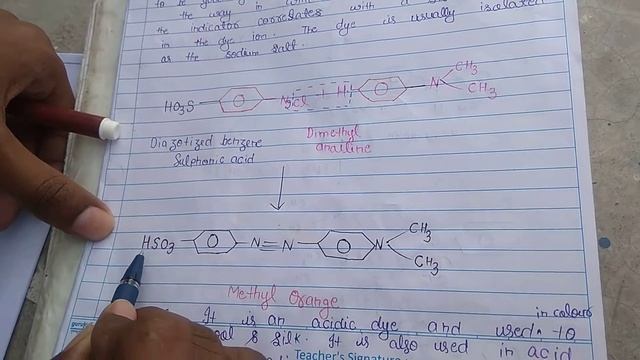 the way in
with a
the indicator correlates
in the dye ion. The dye is usually isolated
as the sodium salt.
HO3S N2Cl + H N CH3
CH3
Diazotized benzene
Sulphonic acid
Dimethyl
anailine
HSO3 N=N N CH3
CH3
Methyl Orange
It is an acidic dye and used in colour
to
& silk. It is also used in acid
Teacher's Signature